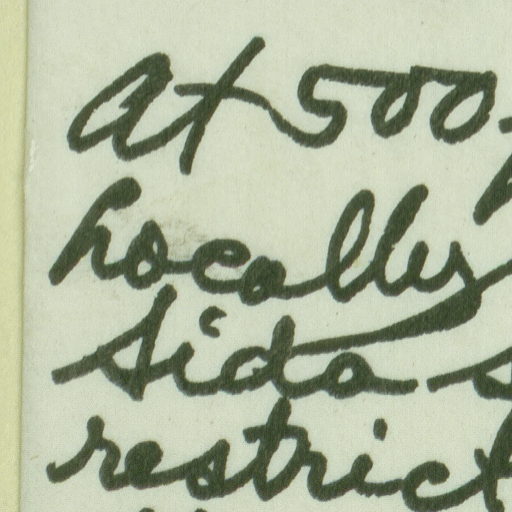 At 500
Locally
Sida
restric